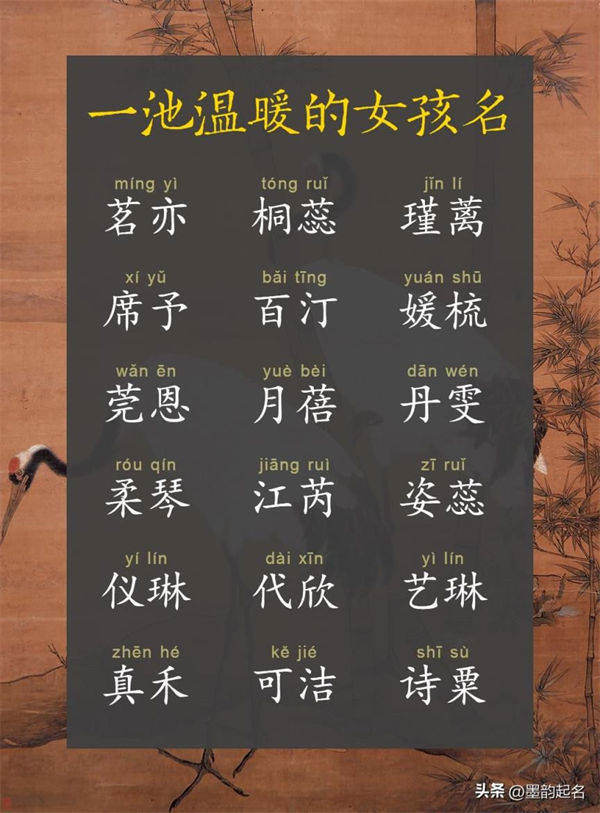 一池温暖的女孩名
míng yì tóng ruǐ jǐn lí
茗亦 桐蕊 瑾蓠
xí yǔ bǎi tīng yuán shū
席予 百汀 媛梳
wǎn ēn yuè bèi dān wén
莞恩 月蓓 丹雯
róu qín jiāng ruì zī ruǐ
柔琴 江芮 姿蕊
yí lín dài xīn yì lín
仪琳 代欣 艺琳
zhēn hé kě jié shī sù
真禾 可洁 诗粟
头条 @墨韵起名